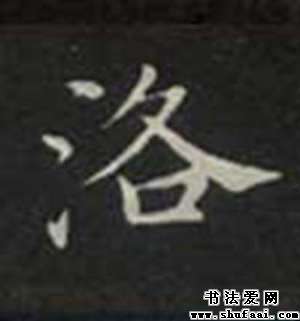 洛
书法爱网
www.shufaai.com